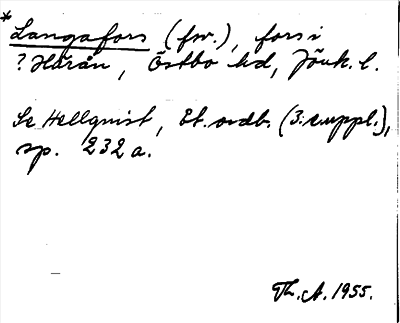 *Langafors (fsv.), fors i
? Hårån, Östbo hd, Jönk. l.
Se Hellquist, Et. ordb. (3: e uppl.),
sp. 232 a.
Th. A. 1955.